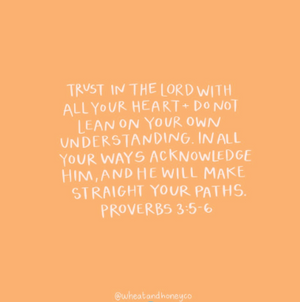 TRUST IN THE LORD WITH
ALL YOUR HEART + DO NOT
LEAN ON YOUR OWN
UNDERSTANDING. IN ALL
YOUR WAYS ACKNOWLEDGE
HIM, AND HE WILL MAKE
STRAIGHT YOUR PATHS.
PROVERBS 3:5-6
@wheatandhoneyco